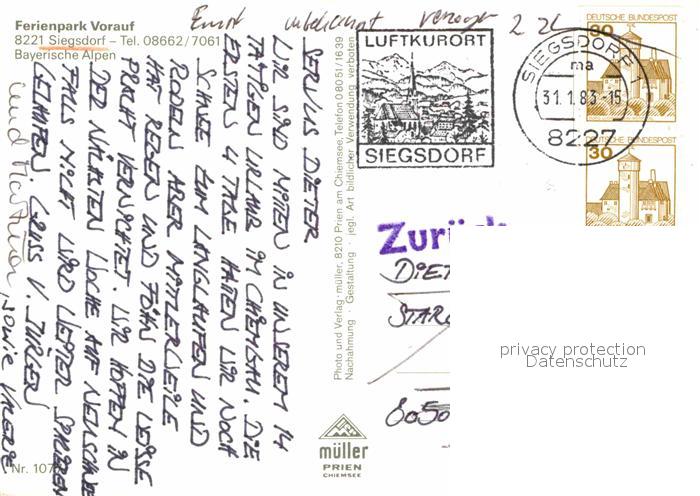 Ferienpark Vorauf
8221 Siegsdorf – Tel. 08662/7061
Bayerische Alpen
verzogen
SERVUS DIETER
WIR SIND MITTEN IN UNSEREM 14
TÄTIGEN URLAUB IM CHIEMGAU. DIE
ERSTEN 4 TAGE HATTEN WIR NOCH
SCHNEE ZUM LANGLAUFEN UND
RODELN ABER MITLERWEILE
HAT REGEN UND FÖHN DIE WEISSE
PRACHT VERNICHTET. WIR HOFFEN IN
DER NÄCHSTEN WOCHE AUF NEUSCHNEE
FALLS NICHT WIRD WEITER
GRUSS V. JÜRGEN
und
sowie
Nr. 107
Photo und Verlag · müller, 8210 Prien am Chiemsee, Telefon 08051/1639
Nachahmung · Gestaltung · jegl. Art bildlicher Verwendung verboten
müller
PRIEN
CHIEMSEE
LUFTKURORT
SIEGSDORF
SIEGSDORF 1
ma
31.1.83-15
8227
DEUTSCHE BUNDESPOST
30
DEUTSCHE BUNDESPOST
30
Zurück
DIET
STAR
8050
privacy protection
Datenschutz